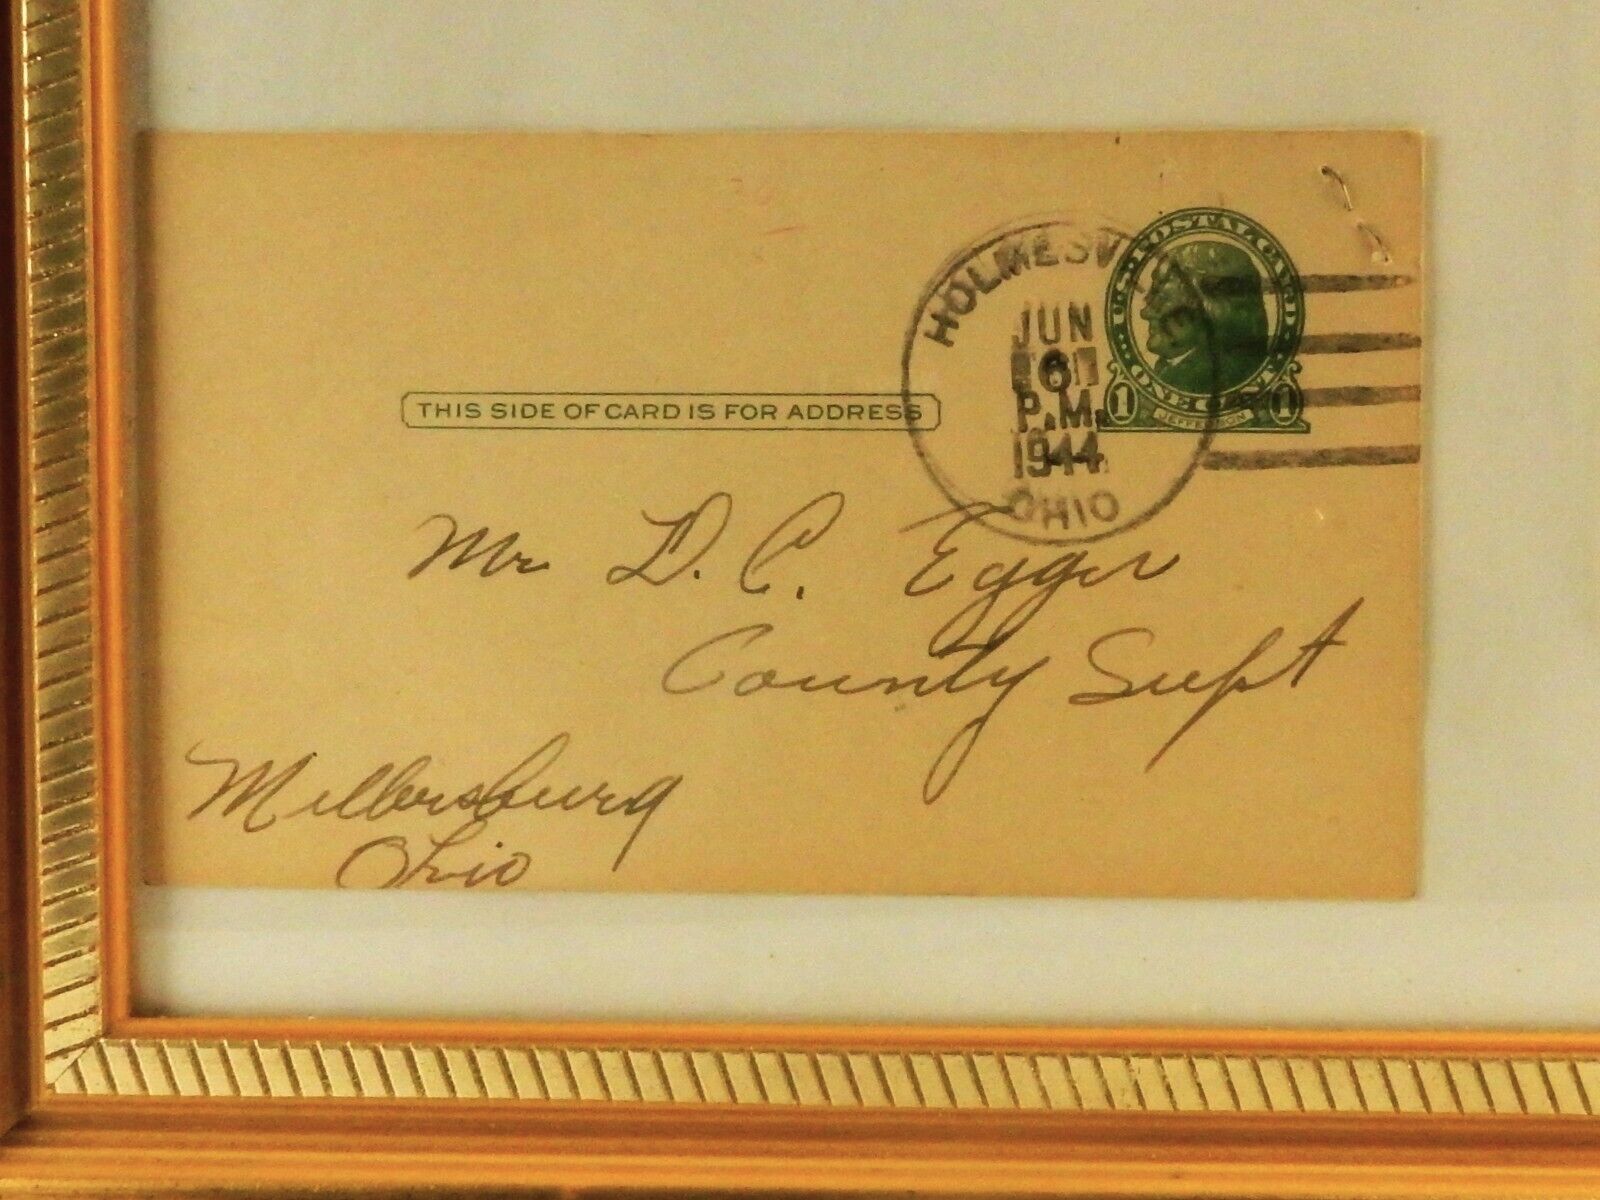 HOLMESVILLE
JUN
6
P.M.
1944
OHIO
U.S. POSTAL CARD
1 ONE CENT 1
JEFFERSON
THIS SIDE OF CARD IS FOR ADDRESS
Mr D. C. Egger
County Supt
Millersburg
Ohio